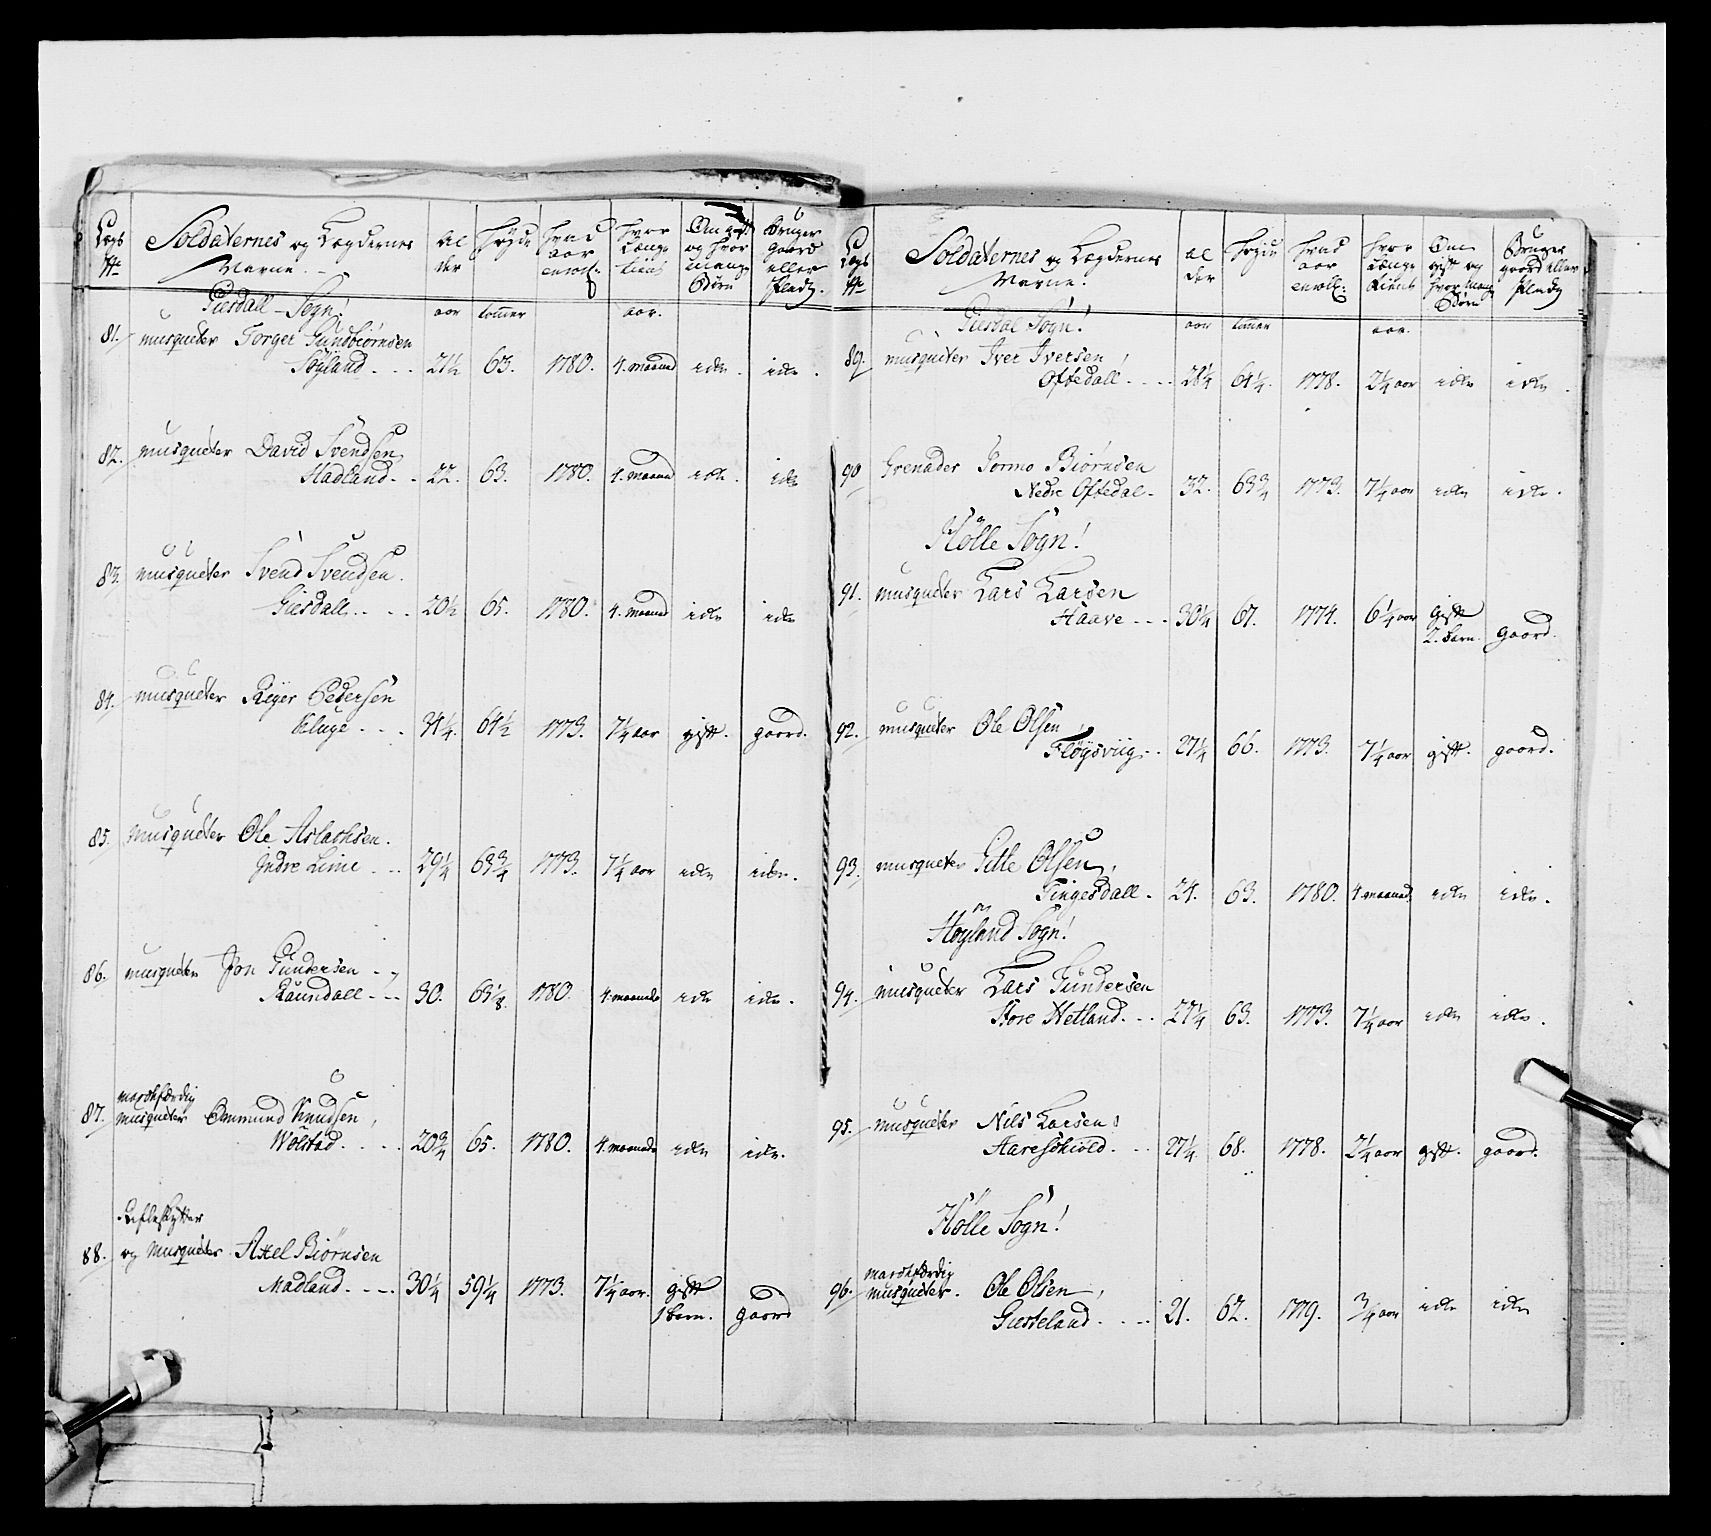 Legs No
Soldaternes og Lægdernes Navne. -
Al der
høyde
hvad aar enroll:
hvor Længe tient
Om gift og hvor mange Børn
Bruger gaard eller Pladz.
Giesdall - Sogn!
aar tommer aar.
81. musqueter Torger Gundbiørnsen
Søyland . . . 21½ 63. 1780. 4. maaned icke . icke .
82. musqueter David Svendsen
Madland . . 22. 63. 1780. 4. maaned icke . icke
83. musqueter Svend Svendsen.
Giesdall . . . 20½ 65. 1780. 4. maaned icke icke
84. musqueter Reyer Pedersen
Kluge . . . 34¼. 64½ 1773. 7¼ aar gift. gaard.
85. musqueter Ole Aslachsen.
Indre Lime . . . 29¼ 63¾ 1773. 7¼ aar icke icke.
86. musqueter Jon Gundersen - -
Raundall - . - 30. 63⅛. 1780. 4. maaneder icke icke.
87. marchfærdig
musqueter Ommund Knudsen,
Wølstad . . . . 20¾ 65. 1780. 4. maaneder icke icke.
Refleskytter
88. og musqueter Axel Biørnsen
Madland . . . . 30¼ 59¼ 1773. 7¼ aar. gift
1 barn. gaard
Legs No
Soldaternes og Lægdernes Navne.
al der
høyde
hvad aar enroll:
hvor Længe tient
Om gift og hvor mange Børn
Bruger gaard eller pladz
Giesdal Sogn!
aar tommer aar.
89. musqueter Iver Iversen,
Oftedall . . . . 28¼ 64¼. 1778. 2¼ aar icke icke .
90 Grenader Tormo Biørnsen
Nedre Oftedal - 32. 63¾ 1773. 7¼ aar icke icke.
Hølle Sogn!
91. musqueter Lars Larsen
Haave . . . 30¼ 67. 1774. 6¼ aar gift
2. barn. gaard.
92. musqueter Ole Olsen
Fløysviig . . 27¼ 66. 1773. 7¼ aar gift. gaard.
93. musqueter Gitle Olsen,
Tingesdall . 24. 63. 1780. 4. maaned. icke icke.
Høyland Sogn!
94. musqueter Lars Gundersen
Store Hetland . . . 27¼ 63. 1773. 7¼ aar icke icke .
95. musqueter Nils Larsen
Aareskiold . . . 27¼ 68. 1778. 2¼ aar gift. gaard.
Hølle Sogn!
marchfærdig
96. musqueter. Ole Olsen,
Giesteland . . . . 21. 62. 1779. ¾ aar icke icke